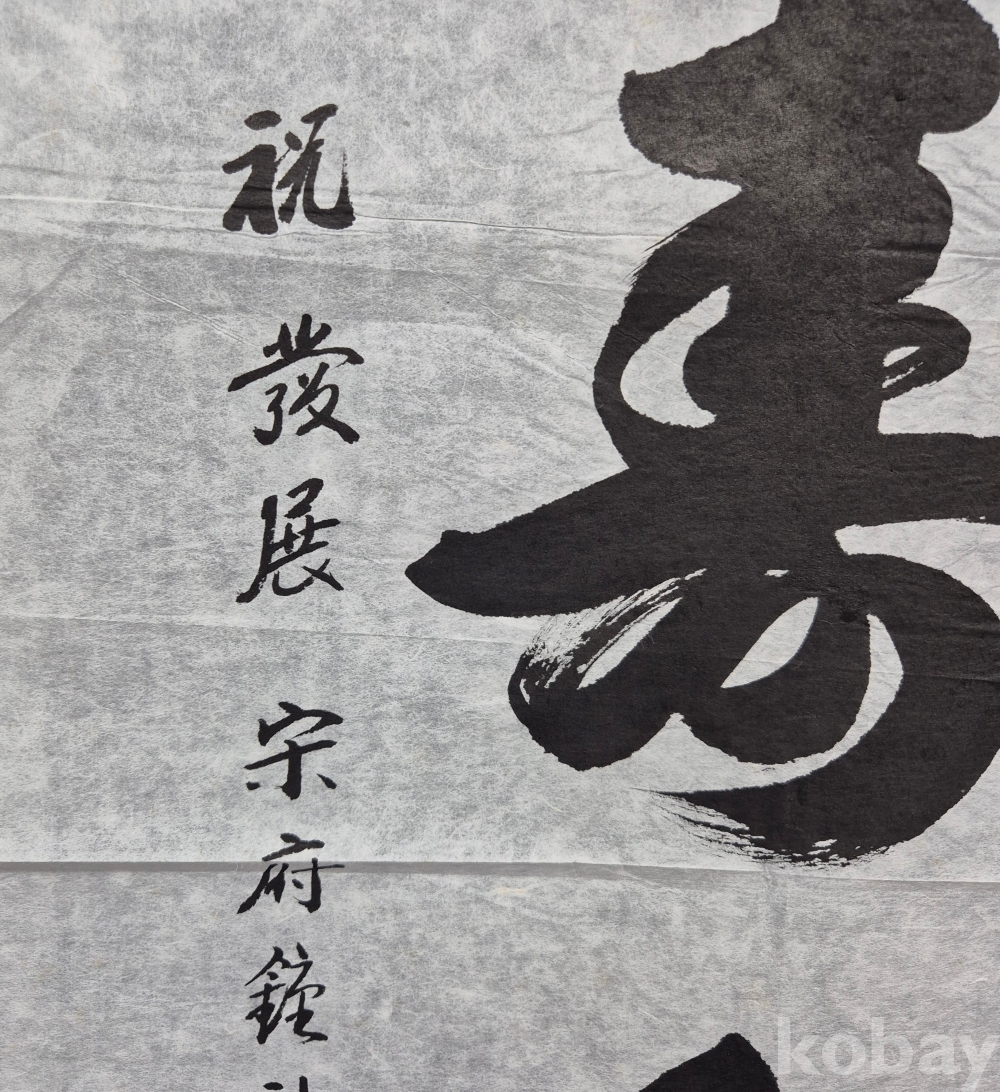 祝發展 宋府鐘
kobay